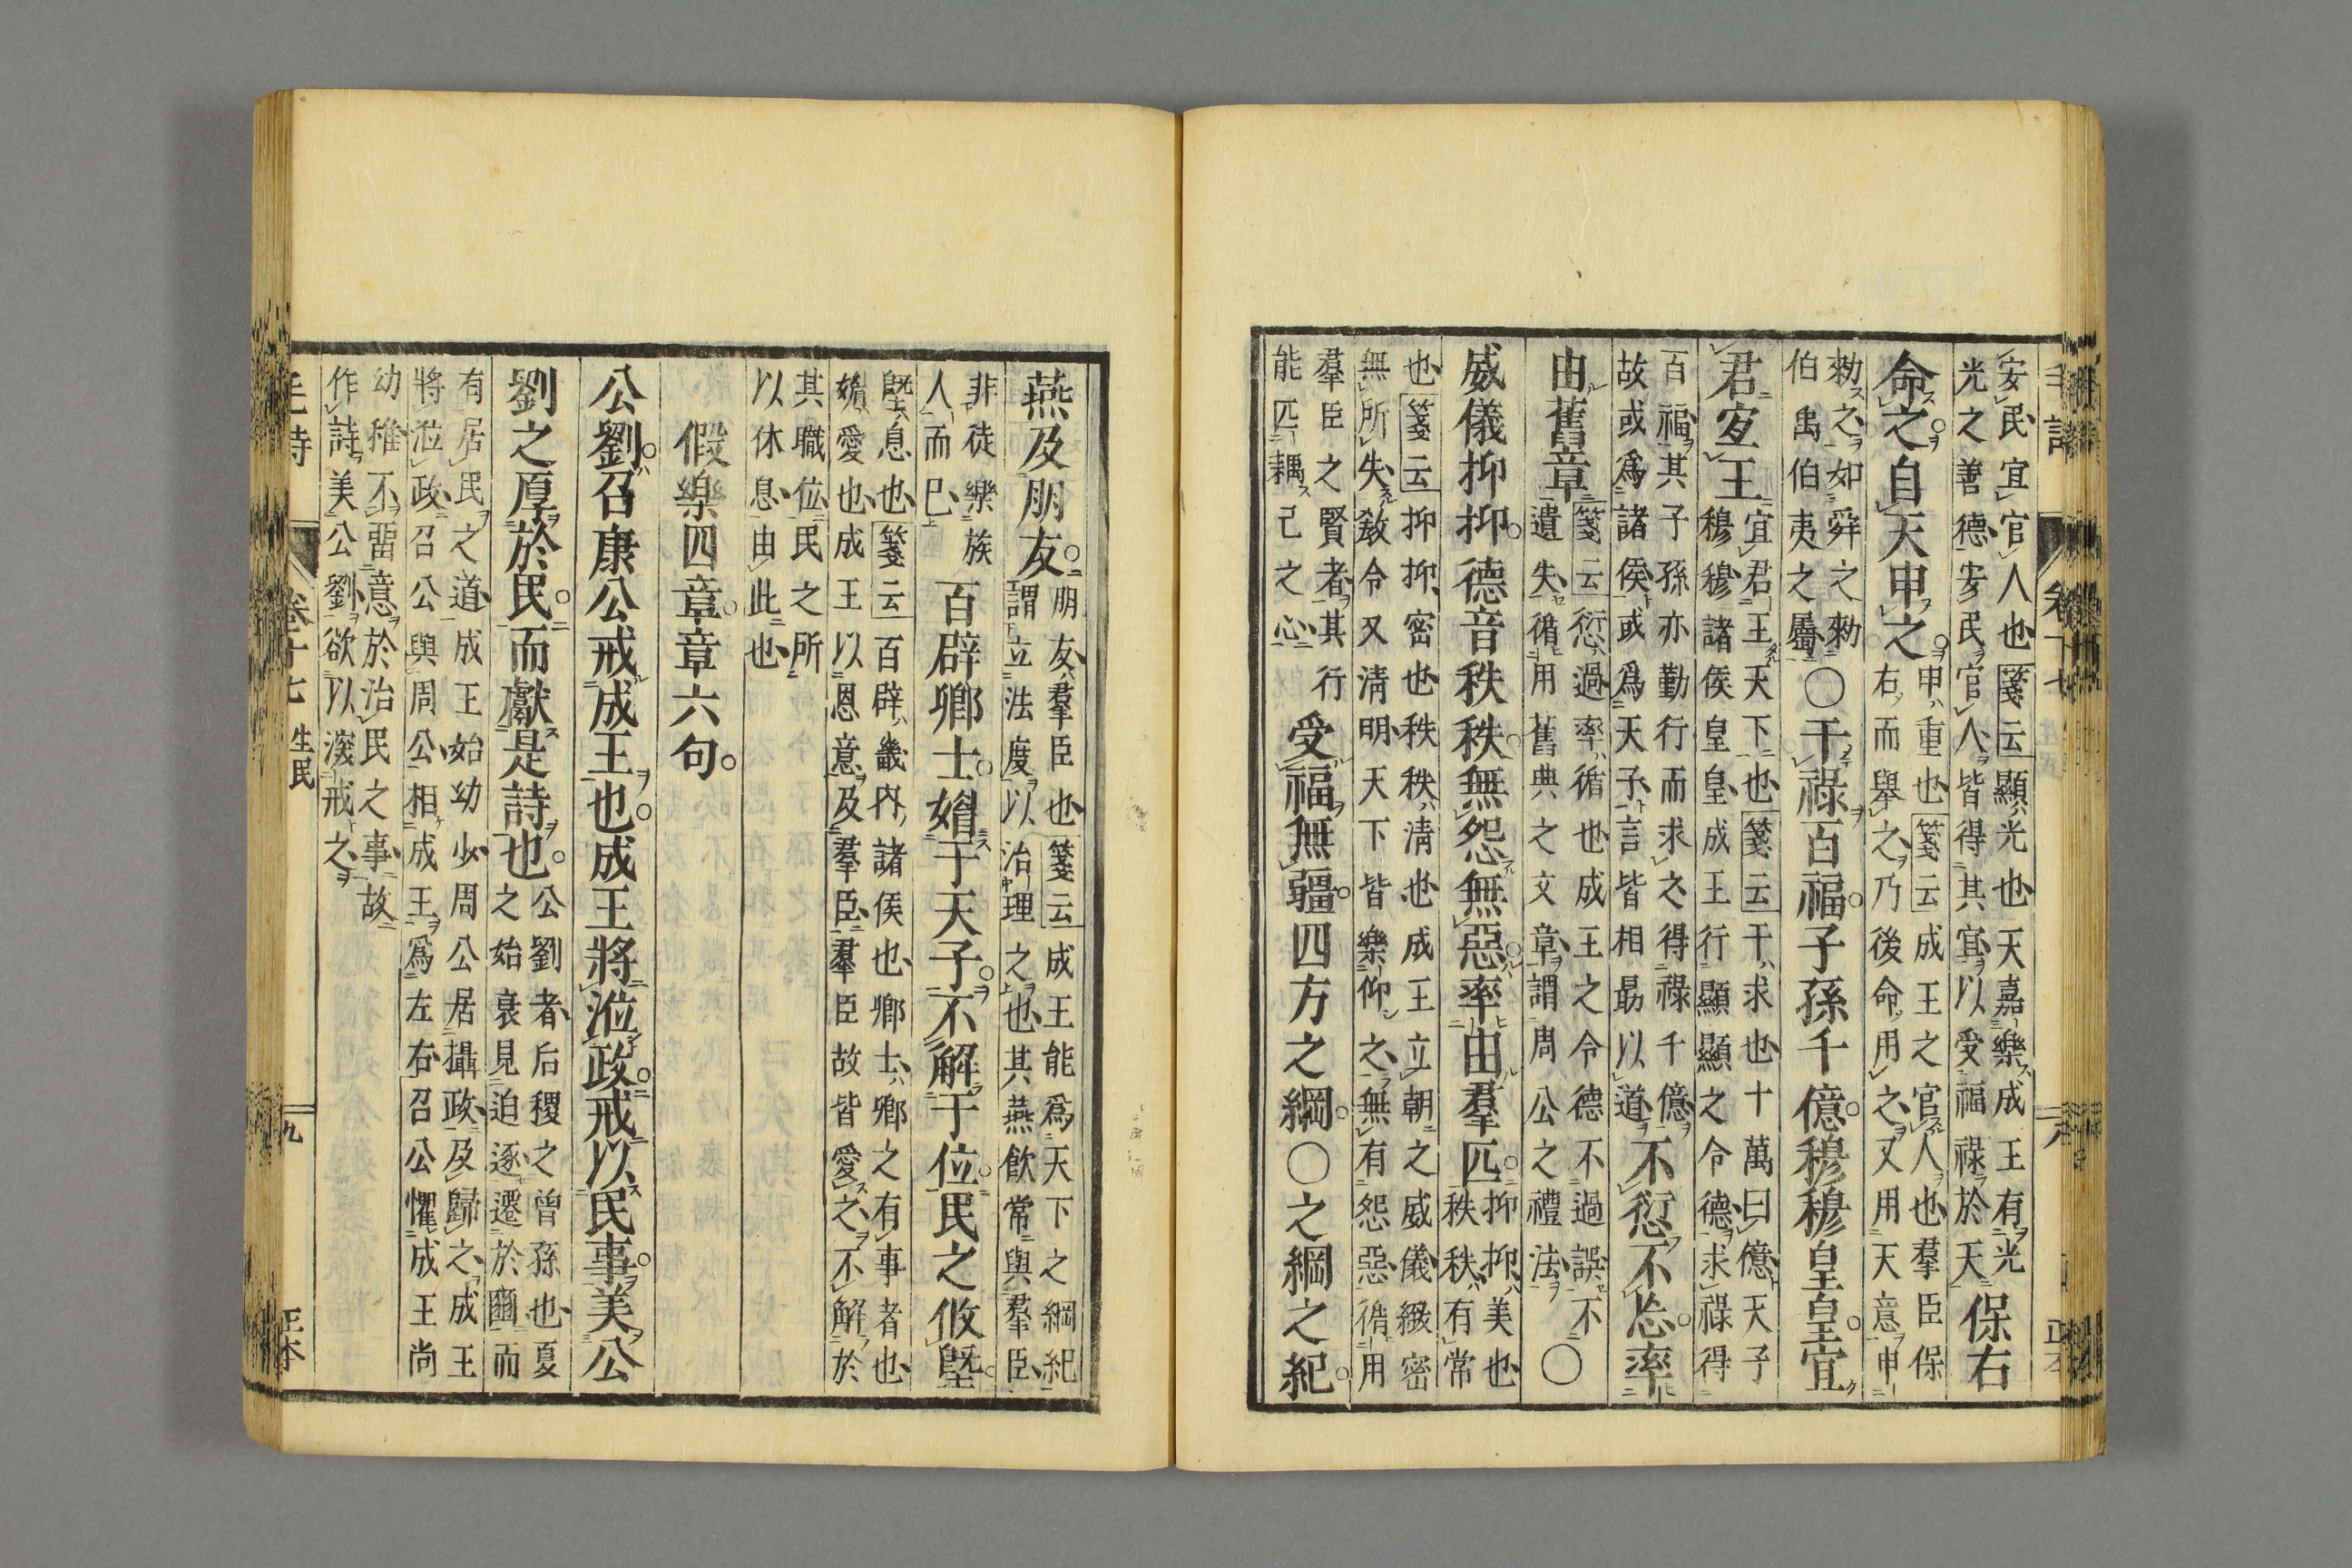 毛詩 卷十七 八 正本
安民宜官人也箋云顯光也天嘉樂成王有光
光之善德安民官人皆得其宜以受福祿於天
保右
命之自天申之
申重也箋云成王之官人也羣臣保
右而舉之乃後命用之又用天意申
勑之如舜之勑
伯禹伯夷之屬
○干祿百福子孫千億穆穆皇皇宜
君宜王
宜君王天下也箋云干求也十萬曰億天子
穆穆諸侯皇皇成王行顯顯之令德求祿得
百福其子孫亦勤行而求之得祿千億
故或爲諸侯或爲天子言皆相勗以道
不愆不忘率
由舊章
箋云愆過率循也成王之令德不過誤不
遺失循用舊典之文章謂周公之禮法
○
威儀抑抑德音秩秩無怨無惡率由羣匹
抑抑美也
秩秩有常
也箋云抑抑密也秩秩清也成王立朝之威儀緻密
無所失敎令又清明天下皆樂仰之無有怨惡循用
羣臣之賢者其行
能匹耦己之心
受福無疆四方之綱○之綱之紀
燕及朋友
朋友羣臣也箋云成王能爲天下之綱紀
謂立法度以治理之也其燕飲常與羣臣
非徒樂族
人而已
百辟卿士媚于天子不解于位民之攸墍
墍息也箋云百辟畿內諸侯也卿士卿之有事者也
媚愛也成王以恩意及羣臣羣臣故皆愛之不解於
其職位民之所
以休息由此也
假樂四章章六句
公劉召康公戒成王也成王將涖政戒以民事美公
劉之厚於民而獻是詩也
公劉者后稷之曾孫也夏
之始衰見迫逐遷於豳而
有居民之道成王始幼少周公居攝政及歸之成王
將涖政召公與周公相成王爲左右召公懼成王尚
幼稚不畱意於治民之事故
作詩美公劉欲以深戒之
毛詩 卷十七 生民 九 正本